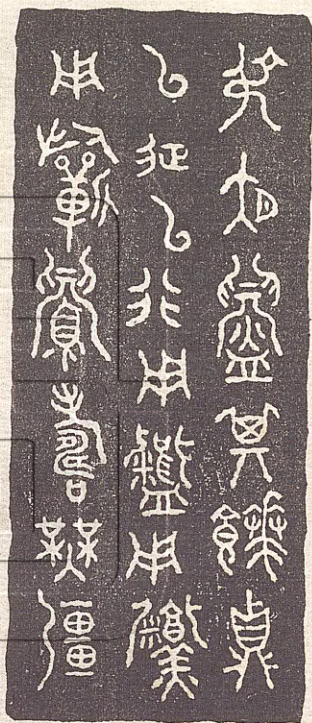 叔夜鑄其饙鼎
以征以行用用
用祈眉壽無疆